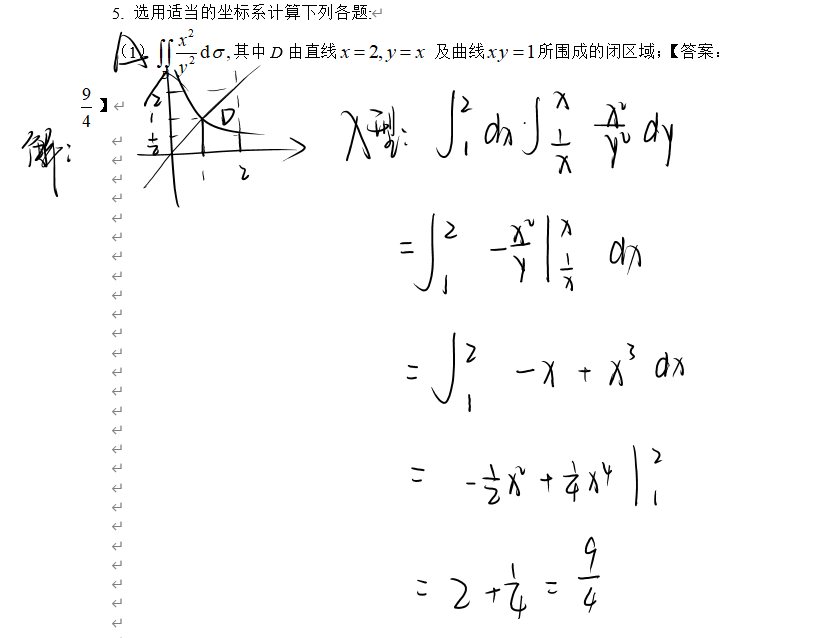 5. 选用适当的坐标系计算下列各题:
(1) ∬ x²/y² dσ, 其中 D 由直线 x = 2, y = x 及曲线 xy = 1 所围成的闭区域;【答案:
9/4】
解:
2
1
1/2
D
1 2
X型: ∫₁² dx ∫_{1/x}^{x} x²/y² dy
= ∫₁² -x²/y |_{1/x}^{x} dx
= ∫₁² -x + x³ dx
= -1/2 x² + 1/4 x⁴ |₁²
= 2 + 1/4 = 9/4